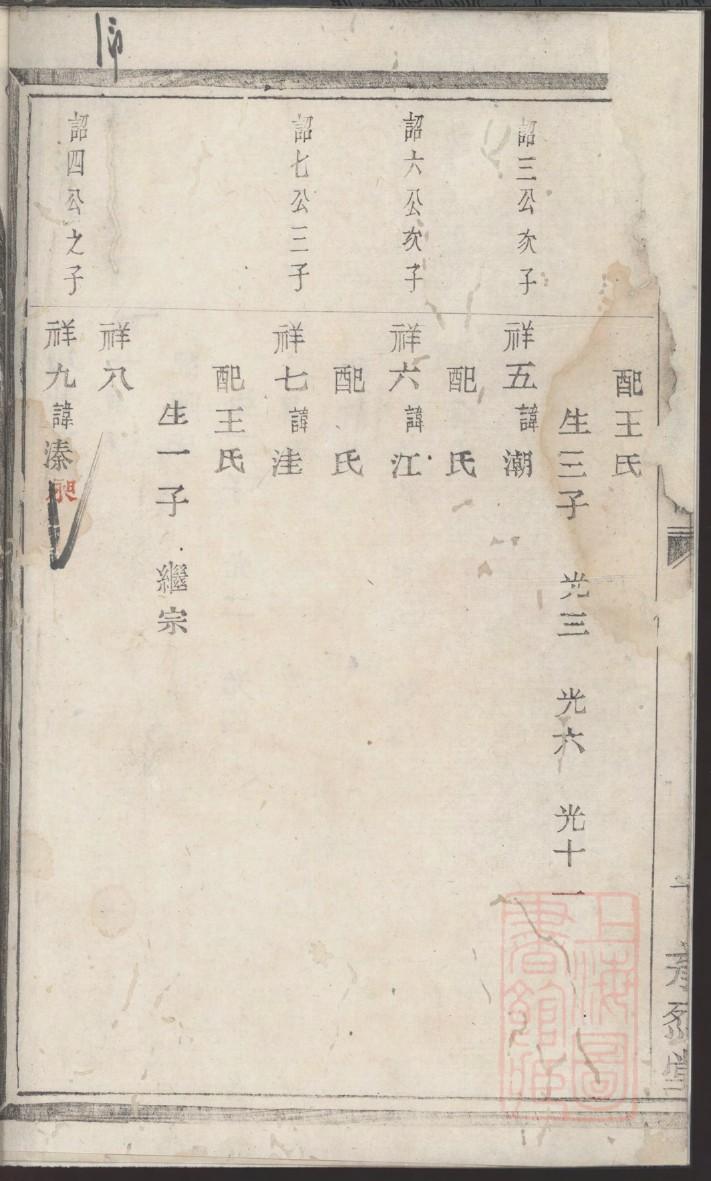 配王氏
生三子 光三 光六 光十一
詔三公次子
祥五諱潮
配 氏
詔六公次子
祥六諱江
配 氏
詔七公三子
祥七諱洼
配王氏
生一子 繼宗
祥八
詔四公之子
祥九諱溱
上海圖
書館藏